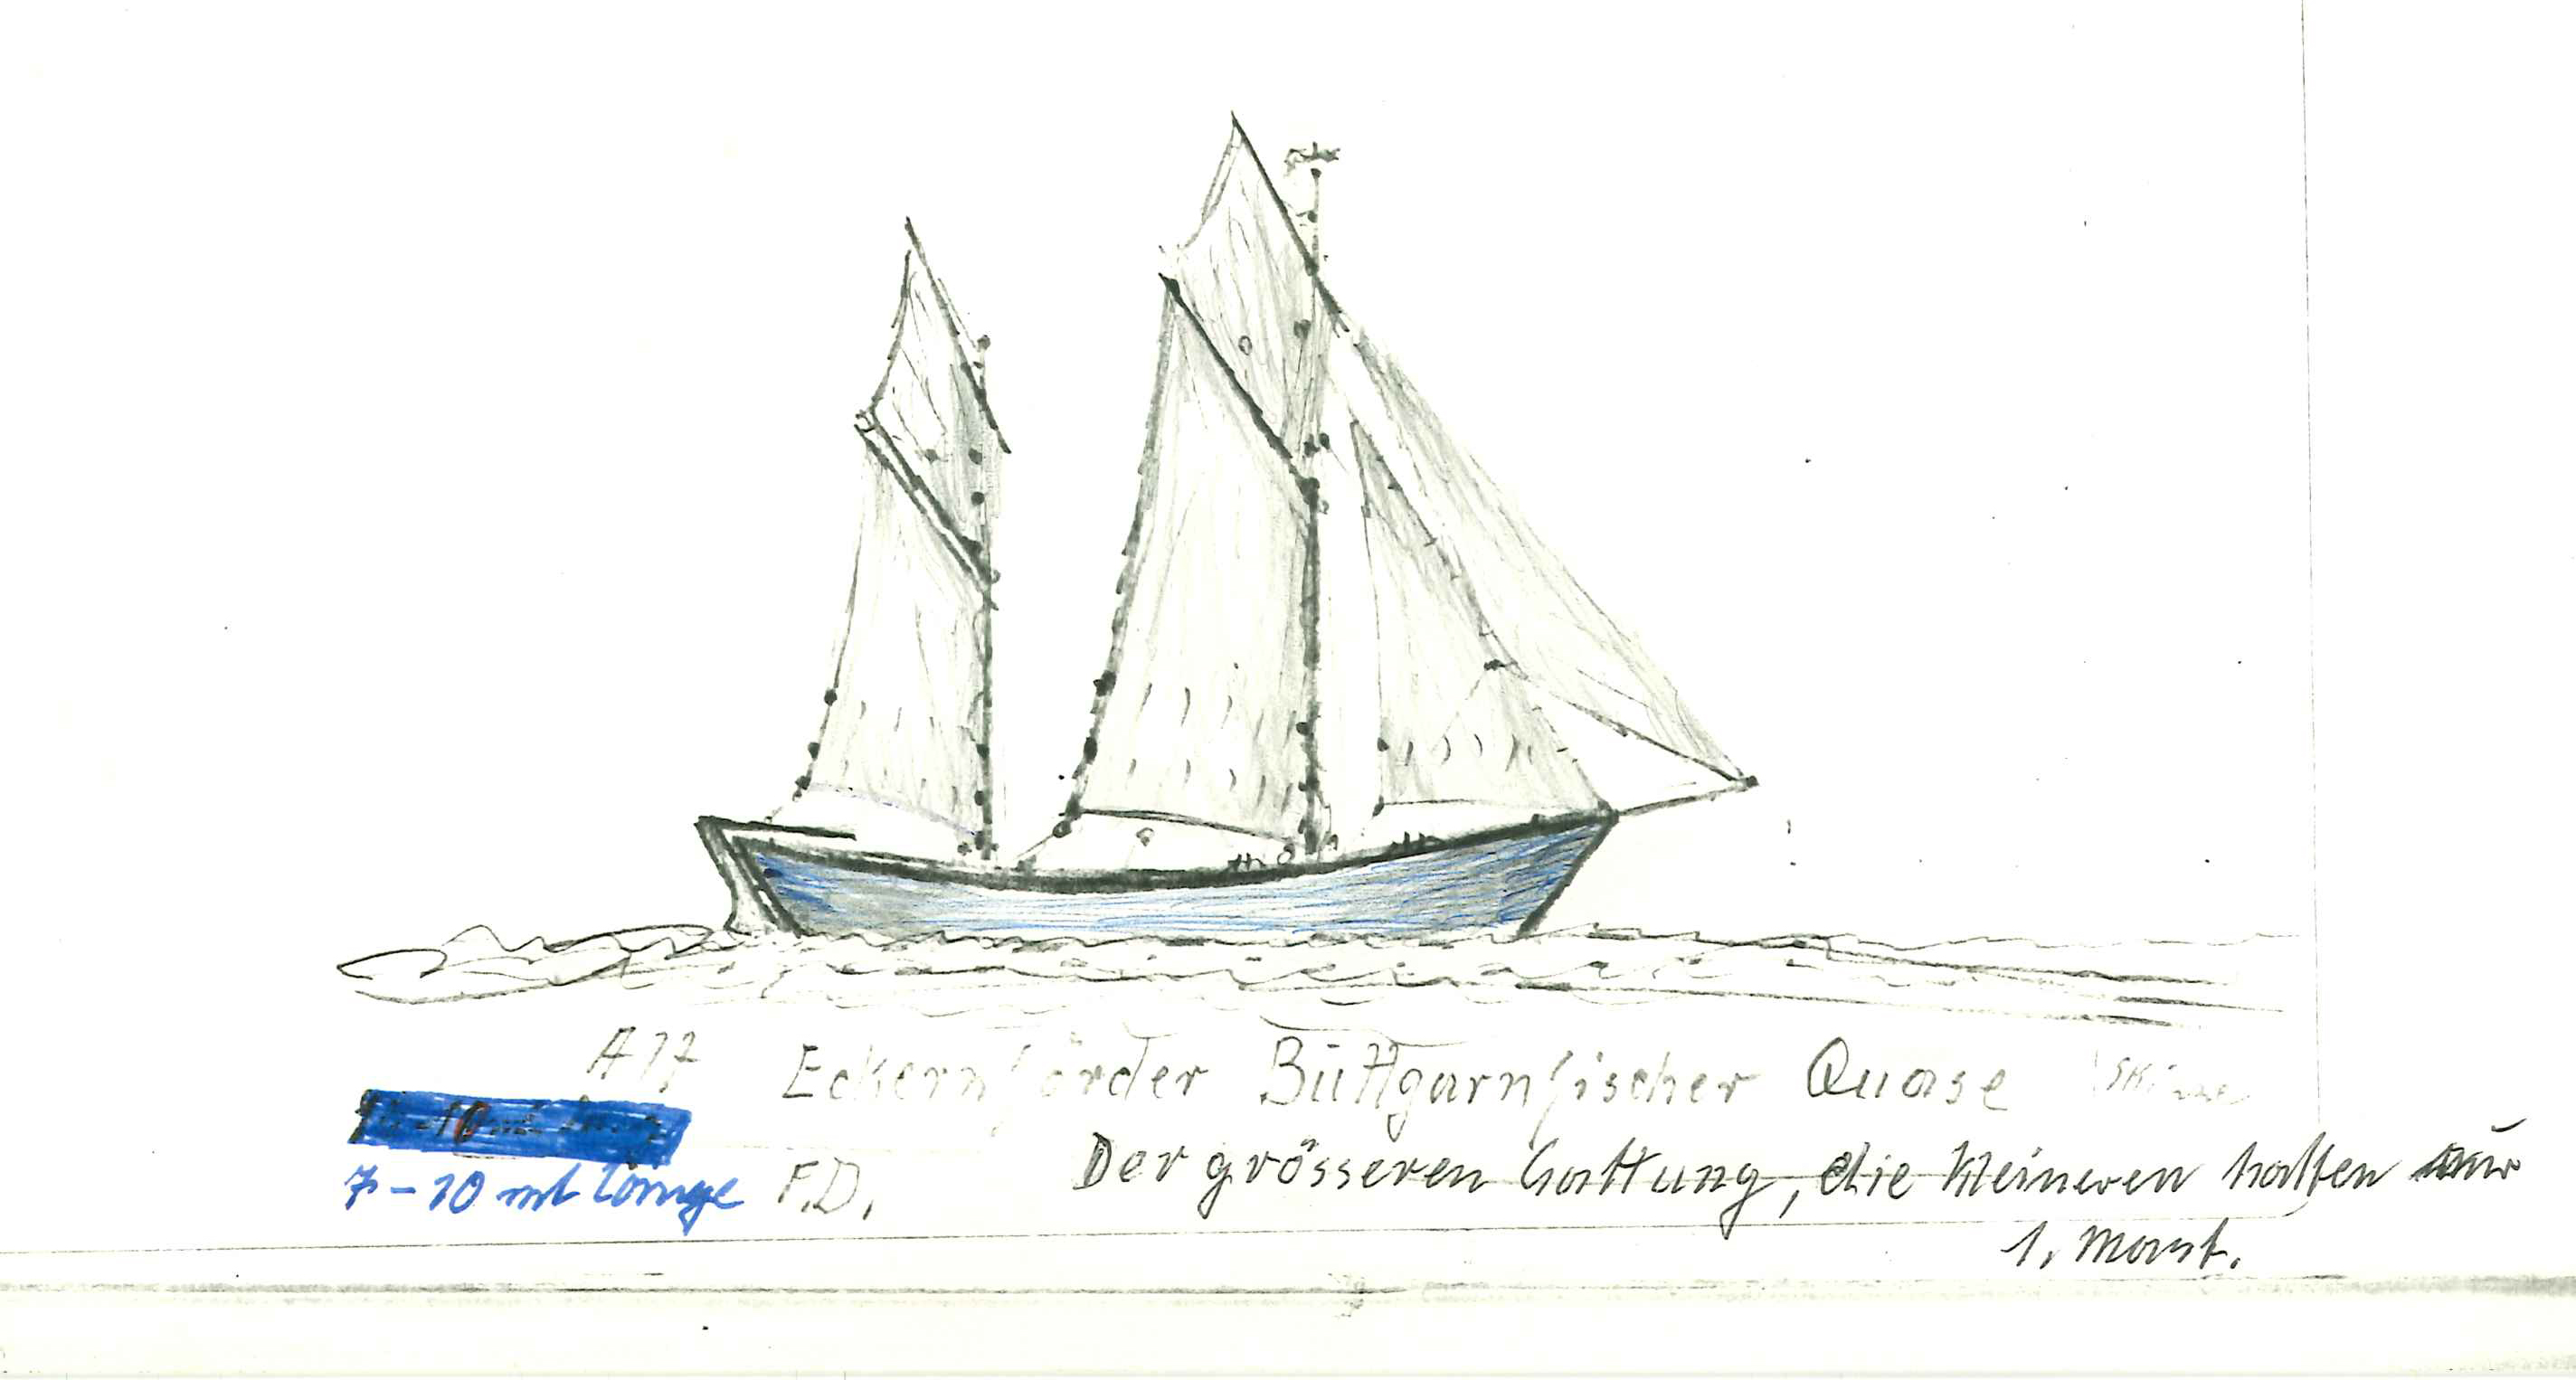 A 17 Eckernförder Büttgarnfischer Quase Skizze
7-10 mt Länge F.D. Der grösseren Gattung, die kleineren hatten nur
1. Mast.